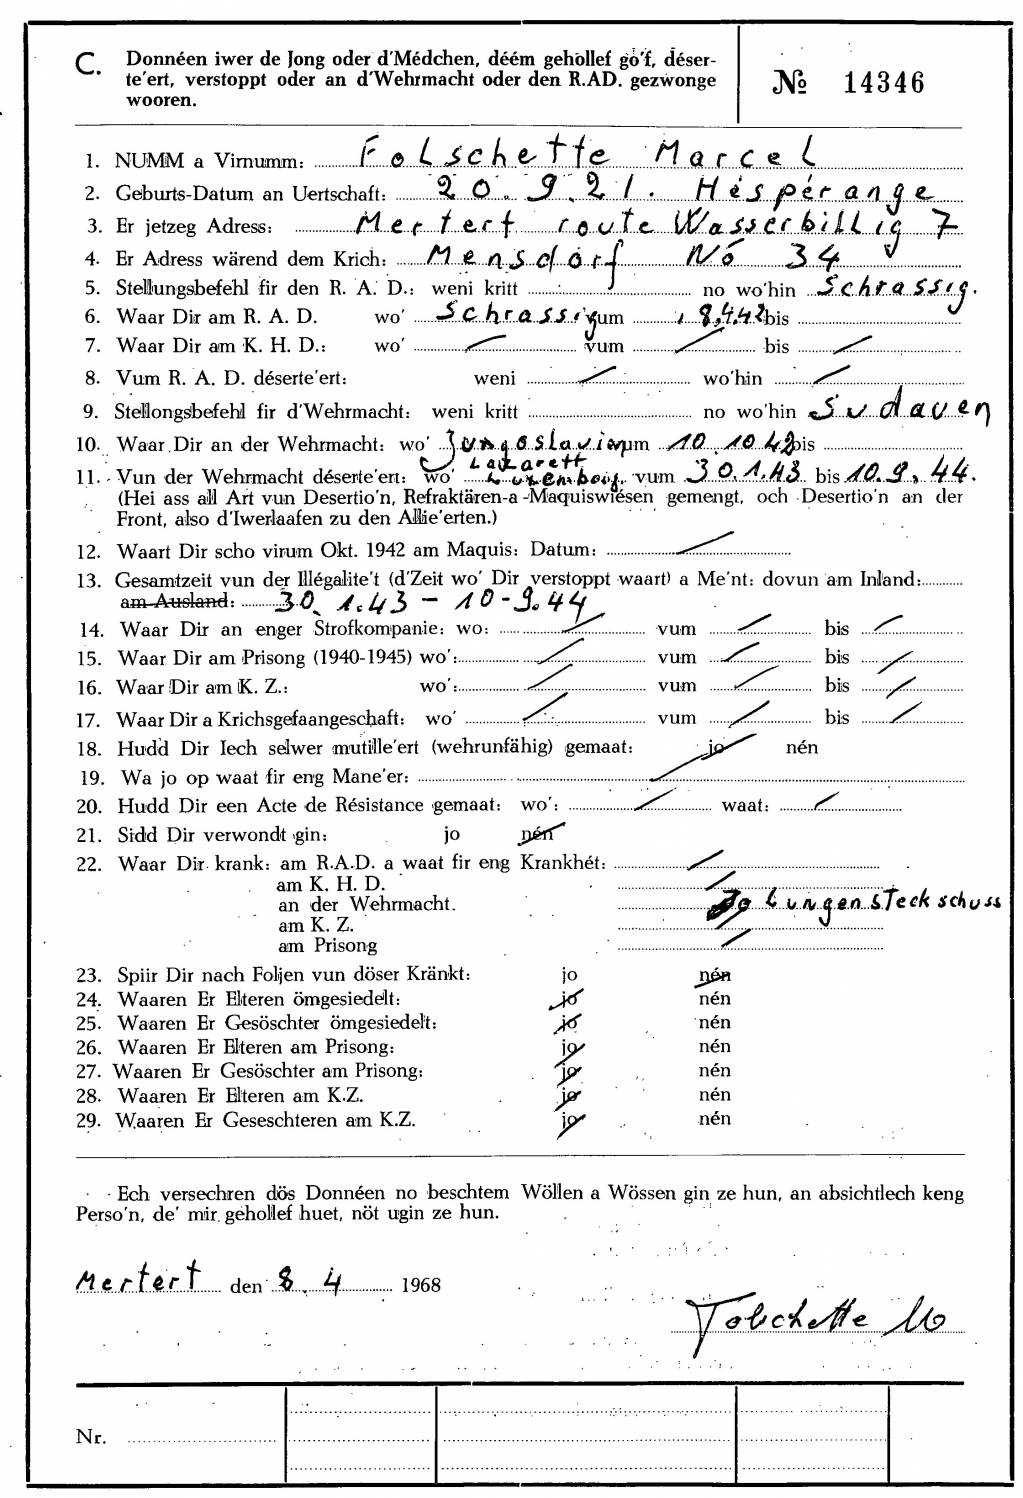 C. Donnéen iwer de Jong oder d'Médchen, déém gehollef gö'f, déser-
te'ert, verstoppt oder an d'Wehrmacht oder den R.AD. gezwonge
wooren.
№ 14346
1. NUMM a Virnumm: Folschette Marcel
2. Geburts-Datum an Uertschaft: 20.9.21. Hespérange
3. Er jetzeg Adress: Mertert route Wasserbillig 7
4. Er Adress wärend dem Krich: Mensdorf No 34
5. Stellungsbefehl fir den R. A. D.: weni kritt no wo'hin Schrassig.
6. Waar Dir am R. A. D. wo' Schrassig vum 8.4.42 bis
7. Waar Dir am K. H. D.: wo' vum bis
8. Vum R. A. D. déserte'ert: weni wo'hin
9. Stellongsbefehl fir d'Wehrmacht: weni kritt no wo'hin Sudauen
10. Waar Dir an der Wehrmacht: wo' Jungoslavien vum 10.10.42 bis
11. Vun der Wehrmacht déserte'ert: wo' Lazarett Luxembourg. vum 30.1.43 bis 10.9.44.
(Hei ass all Art vun Desertio'n, Refraktären-a -Maquiswiesen gemengt, och Desertio'n an der
Front, also d'Iwerlaafen zu den Allie'erten.)
12. Waart Dir scho virum Okt. 1942 am Maquis: Datum:
13. Gesamtzeit vun der Illégalite't (d'Zeit wo' Dir verstoppt waart) a Me'nt: dovun am Inland:
am Ausland: 30.1.43 - 10-9.44
14. Waar Dir an enger Strofkompanie: wo: vum bis
15. Waar Dir am Prisong (1940-1945) wo': vum bis
16. Waar Dir am K. Z.: wo': vum bis
17. Waar Dir a Krichsgefaangeschaft: wo' vum bis
18. Hudd Dir Iech selwer mutille'ert (wehrunfähig) gemaat: jo nén
19. Wa jo op waat fir eng Mane'er:
20. Hudd Dir een Acte de Résistance gemaat: wo': waat:
21. Sidd Dir verwondt gin: jo nén
22. Waar Dir krank: am R.A.D. a waat fir eng Krankhét:
am K. H. D.
an der Wehrmacht. Jo Lungensteckschuss
am K. Z.
am Prisong
23. Spiir Dir nach Foljen vun döser Kränkt: jo nén
24. Waaren Er Elteren ömgesiedelt: jo nén
25. Waaren Er Gesöschter ömgesiedelt: jo nén
26. Waaren Er Elteren am Prisong: jo nén
27. Waaren Er Gesöschter am Prisong: jo nén
28. Waaren Er Elteren am K.Z. jo nén
29. Waaren Er Geseschteren am K.Z. jo nén
Ech versechren dös Donnéen no beschtem Wöllen a Wössen gin ze hun, an absichtlech keng
Perso'n, de' mir gehollef huet, nöt ugin ze hun.
Mertert den 8.4 1968
Folschette M
Nr.